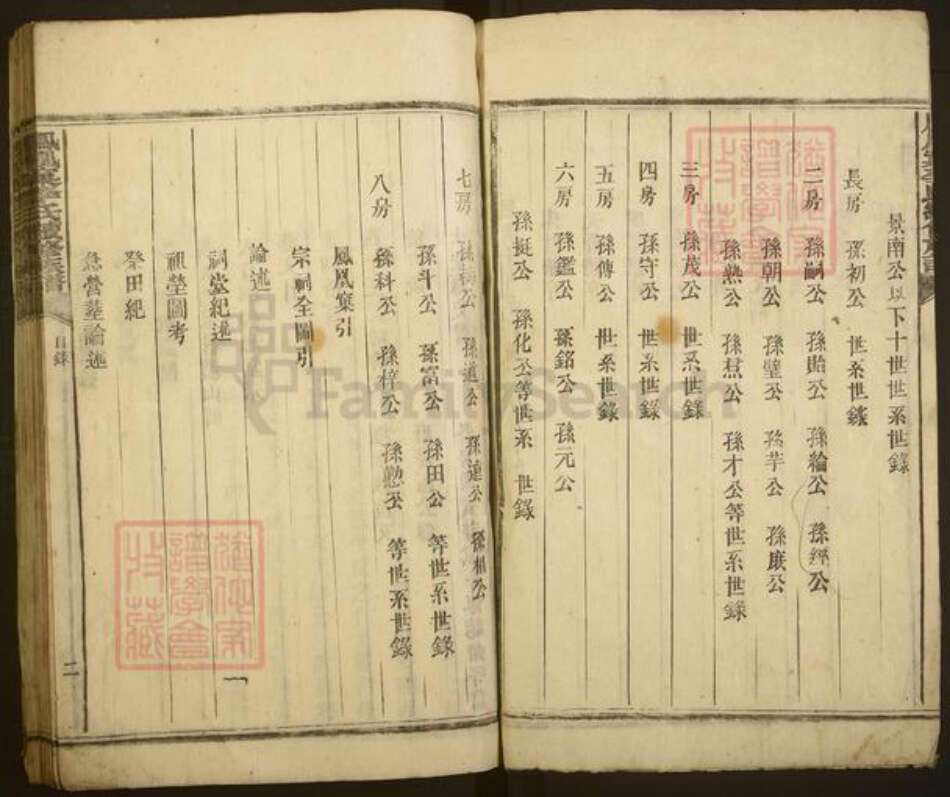 景南公以下十世世系世錄
長房 孫初公 世系世錄
二房 孫嗣公 孫貽公 孫綸公 孫經公
孫朝公 孫璧公 孫芋公 孫展公
孫熟公 孫焄公 孫才公等世系世錄
三房 孫茂公 世系世錄
四房 孫守公 世系世錄
五房 孫傳公 世系世錄
六房 孫鑑公 孫銘公 孫元公
孫挺公 孫化公等世系 世錄
七房 孫公 孫道公 孫達公 孫相公
孫斗公 孫富公 孫田公 等世系世錄
八房 孫科公 孫梓公 孫懃公 等世系世錄
鳳凰寨引
宗祠全圖引
論述
祠堂紀述
祖塋圖考
祭田紀
急營塟論述
目錄
二
FamilySearch